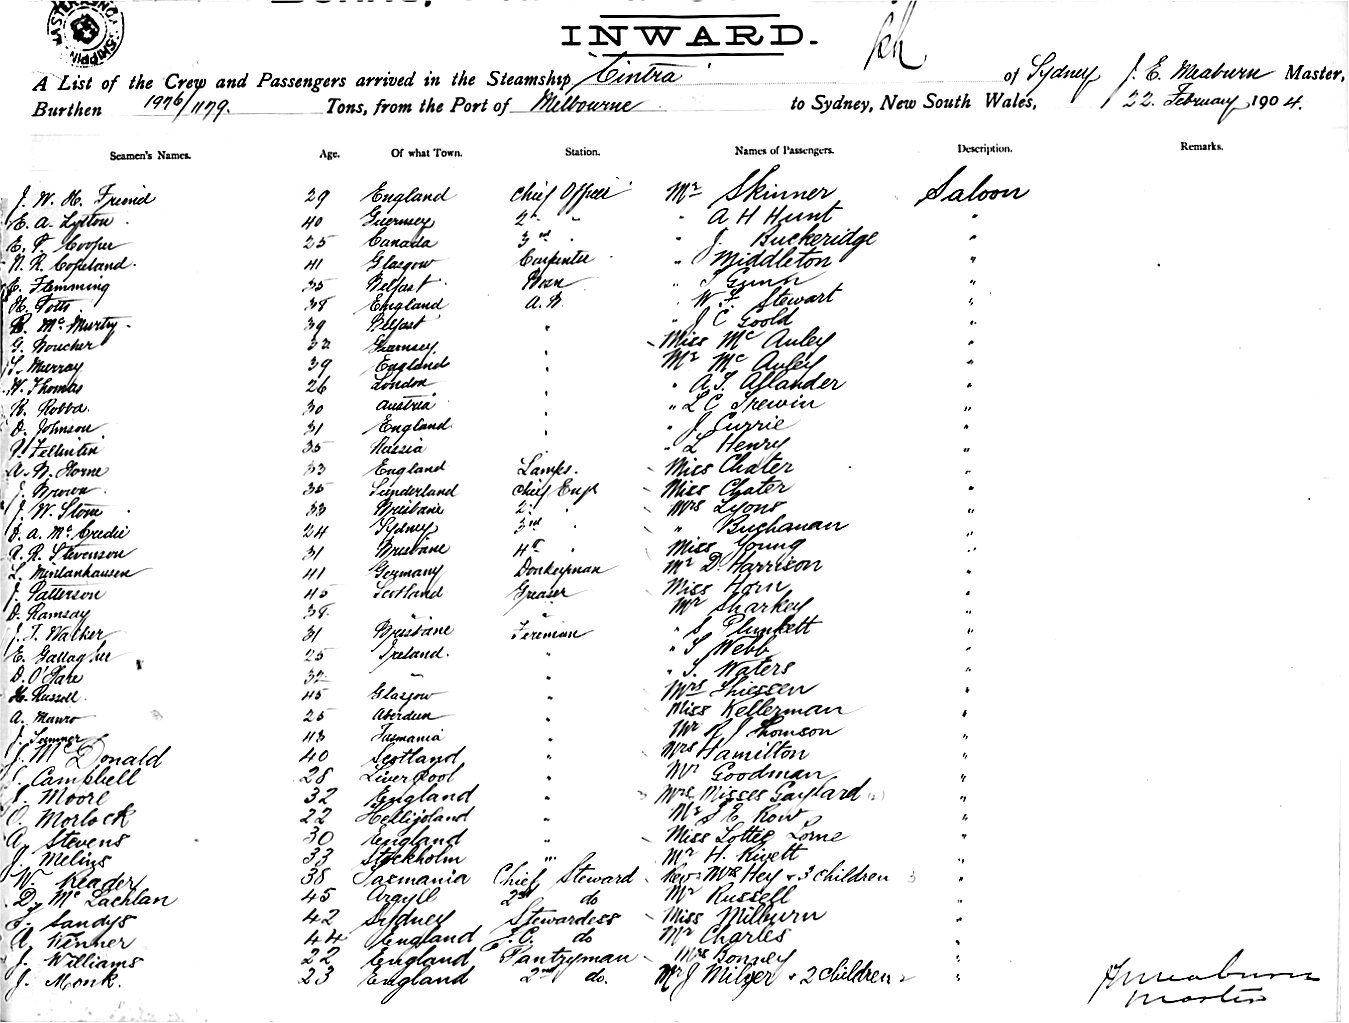 INWARD.
A List of the Crew and Passengers arrived in the Steamship "Cintra" of Sydney J. E. Meaburn Master,
Burthen 1976/1179. Tons, from the Port of Melbourne to Sydney, New South Wales, 22. February 1904.
Seamen's Names. Age. Of what Town. Station. Names of Passengers. Description. Remarks.
J. W. H. 29 England Chief Officer Mr Skinner Saloon
E. A. Lytton 40 Guernsey 2nd " " A H Hunt "
E. P. Cooper 25 Canada 3rd " " J. Buckeridge "
N. R. Copeland. 41 Glasgow Carpenter " Middleton "
C. Flemming 35 Belfast Bosn " Gunn "
H. Potts 38 England A.B. " W. F. Stewart "
R. McMurty. 39 Belfast " " J C Goold "
G. Boucher 32 Guernsey " Miss McAuley "
S. Murray 39 England " Mr McAuley "
W. Thomas 26 London " " A. S. Allander "
R. Robba. 30 Austria " " L C Trewin "
D. Johnson 31 England " " J Currie "
35 Russia " " L Henry "
A. B. Horne 33 England Lamps. Miss Chater "
J. Brown 35 Sunderland Chief Engr Miss Chater "
J. W. Stone 33 Brisbane 2nd " Mrs Lyons "
D. A. McCredie 24 Sydney 3rd " " Buchanan "
A. R. Stevenson 31 Brisbane 4th " Miss Young "
L. Mintanhausen 41 Germany Donkeyman Mr D. Harrison "
J. Patterson 45 Scotland Greaser Miss Horn "
D. Ramsay 38. " " Mr Sharkey "
J. T. Walker 31 Brisbane Fireman " S Plunkett "
E. Gallagher 25 Ireland. " " S Webb "
D. O'Hare 32 " " " S. Waters "
H. Russell 45 Glasgow " Mrs Thiessen "
A. Munro 25 Aberdeen " Miss Kellerman "
J. Sumner 43 Tasmania " Mr R J Thomson "
J. McDonald 40 Scotland " Mrs Hamilton "
Campbell 28 Liverpool " Mr Goodman "
Moore 32 England " Mrs, Misses Gaylard (2) "
O. Morlock 22 Heligoland " Mr S E Row "
A. Stevens 30 England " Miss Lottie Lorne "
J. Melins 33 Stockholm " Mr H. Rivett "
W. Reader 38 Tasmania Chief Steward Rev & Mrs Hey & 3 children 3 "
D. McLachlan 45 Argyll 2nd do Mr Russell "
F. Sandys 42 Sydney Stewardess Miss Milburn "
A. Kenner 44 England F.C. do Mr Charles "
J. Williams 22 England Pantryman Mrs Bonney "
J. Monk. 23 England 2nd do. Mr J Milner & 2 children 2 "
J E Meaburn
Master